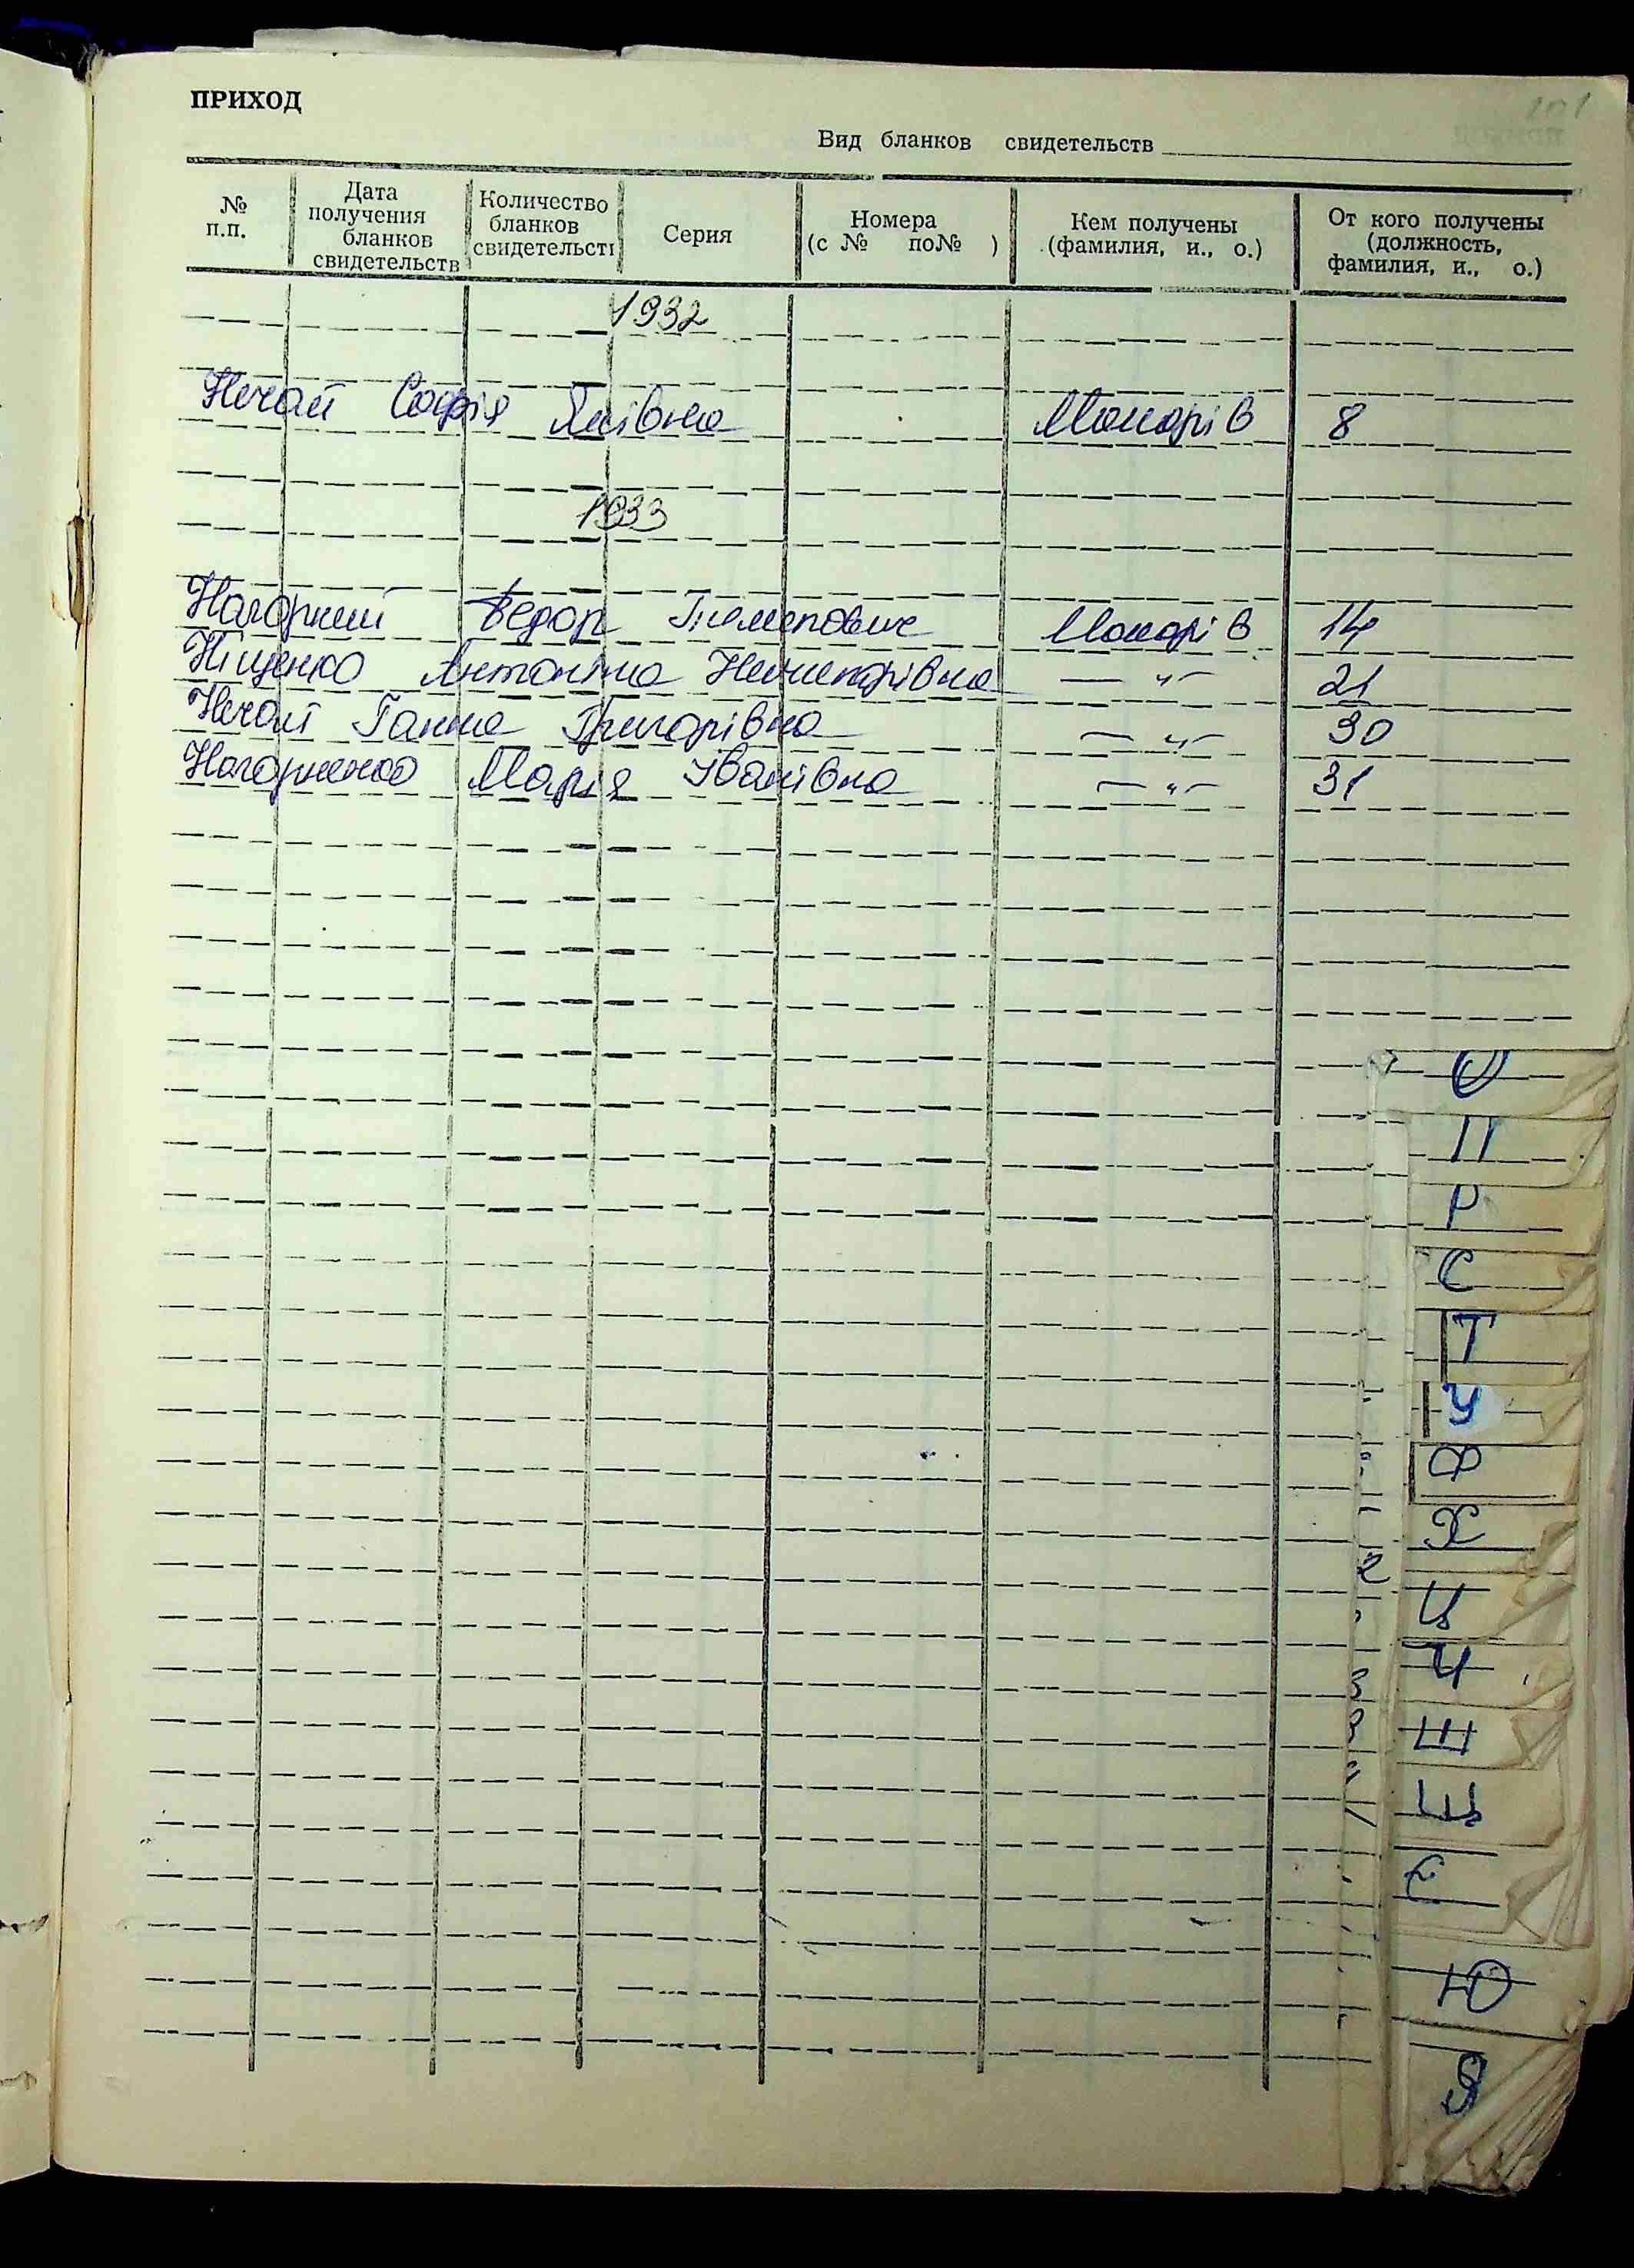 ПРИХОД
101
Вид бланков свидетельств
№ п.п.
Дата получения бланков свидетельств
Количество бланков свидетельств
Серия
Номера (с № по№ )
Кем получены (фамилия, и., о.)
От кого получены (должность, фамилия, и., о.)
1932
Нечай Софія Яківна Макарів 8
1933
Нагорний Федор Пилипович Макарів 14
Ніщенко Антоніна Нечипорівна — " — 21
Нечай Ганна Григорівна — " — 30
Нагорненко Марія Іванівна — " — 31
О
П
Р
С
Т
У
Ф
Х
Ц
Ч
Ш
Щ
Є
Ю
Я